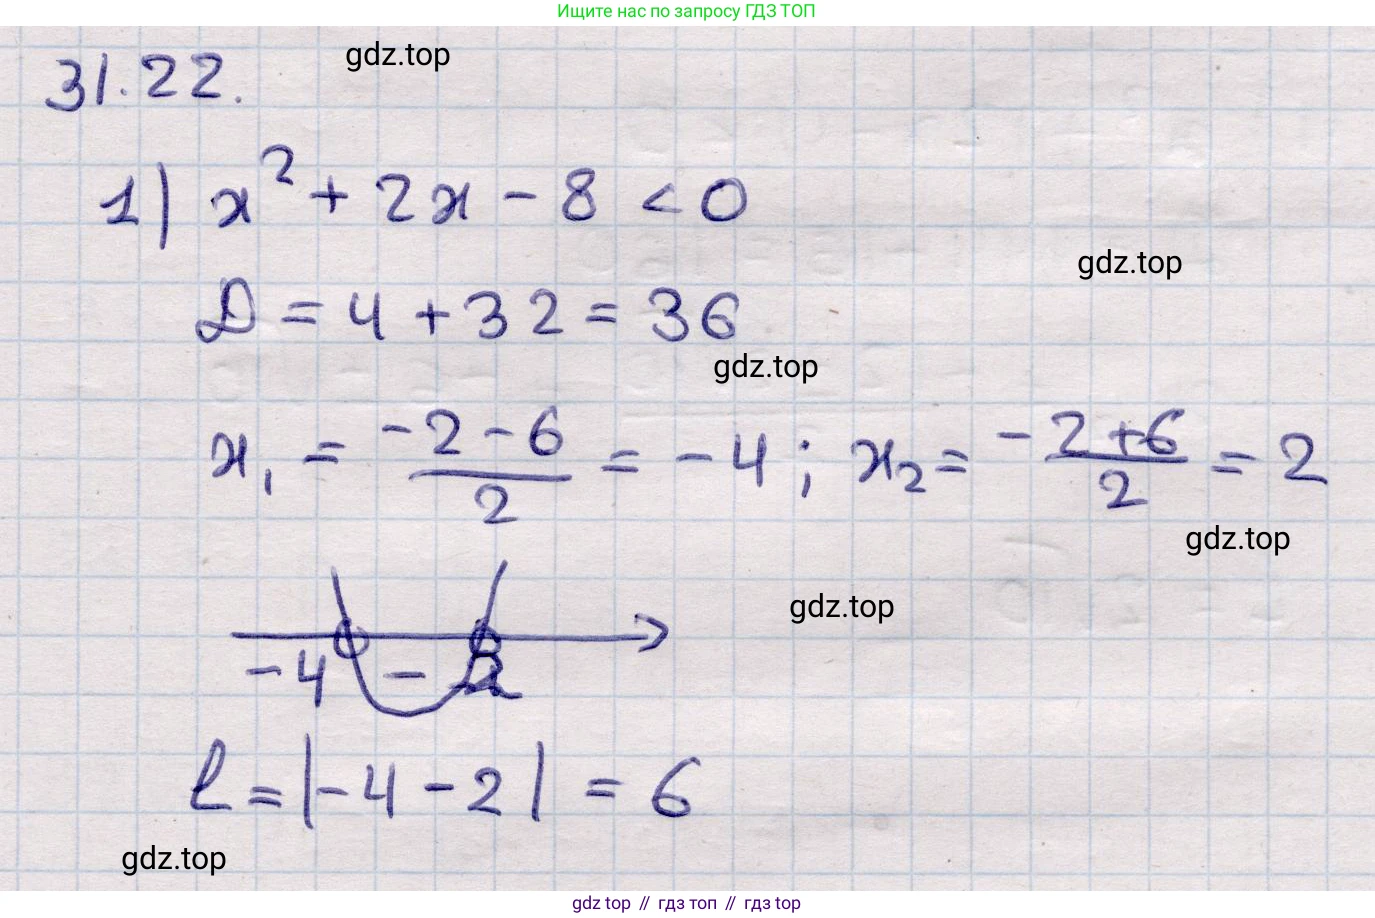 Ищите нас по запросу ГДЗ ТОП
gdz.top
31.22.
1) x² + 2x - 8 < 0
gdz.top
D = 4 + 32 = 36
gdz.top
x₁ = (-2-6)/2 = -4; x₂ = (-2+6)/2 = 2
gdz.top
gdz.top
-4 - 2
l = |-4 - 2| = 6
gdz.top
gdz top // гдз топ // гдз top